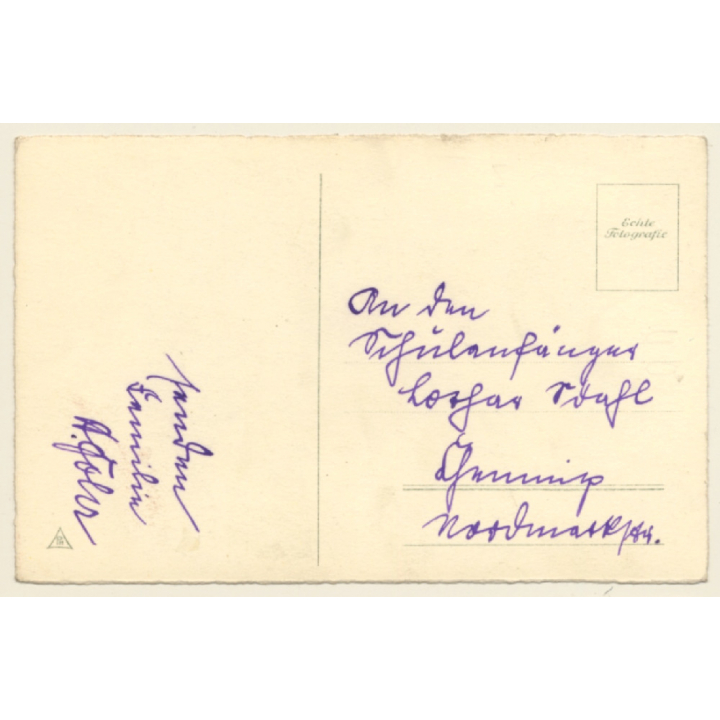 Echte
Fotografie
An den
Schulanfänger
Lothar Stahl
Chemnitz
Nordmarkstr.
senden
Familie